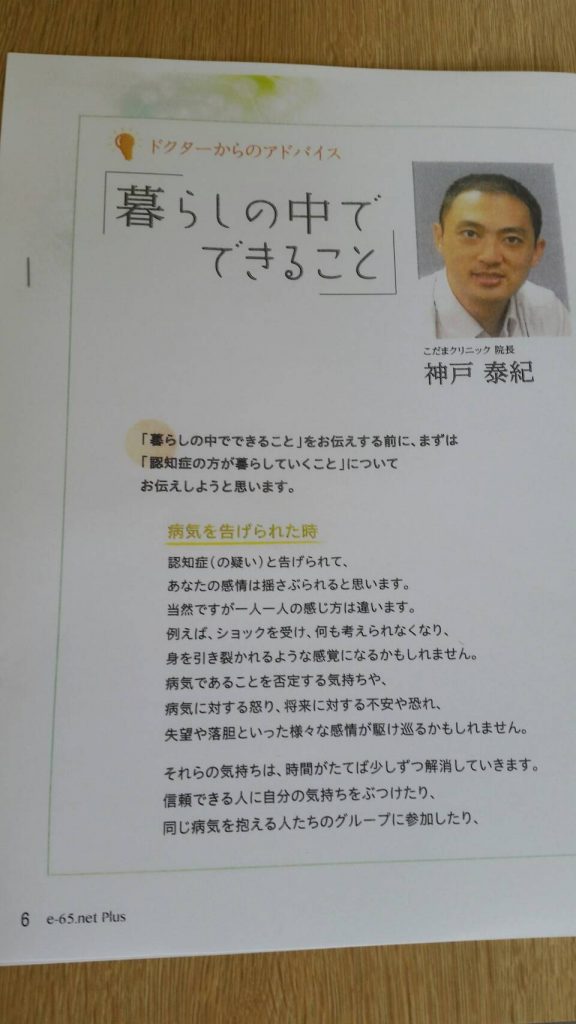 ドクターからのアドバイス
「暮らしの中で
できること」
こだまクリニック 院長
神戸 泰紀
「暮らしの中でできること」をお伝えする前に、まずは
「認知症の方が暮らしていくこと」について
お伝えしようと思います。
病気を告げられた時
認知症（の疑い）と告げられて、
あなたの感情は揺さぶられると思います。
当然ですが一人一人の感じ方は違います。
例えば、ショックを受け、何も考えられなくなり、
身を引き裂かれるような感覚になるかもしれません。
病気であることを否定する気持ちや、
病気に対する怒り、将来に対する不安や恐れ、
失望や落胆といった様々な感情が駆け巡るかもしれません。
それらの気持ちは、時間がたてば少しずつ解消していきます。
信頼できる人に自分の気持ちをぶつけたり、
同じ病気を抱える人たちのグループに参加したり、
6 e-65.net Plus